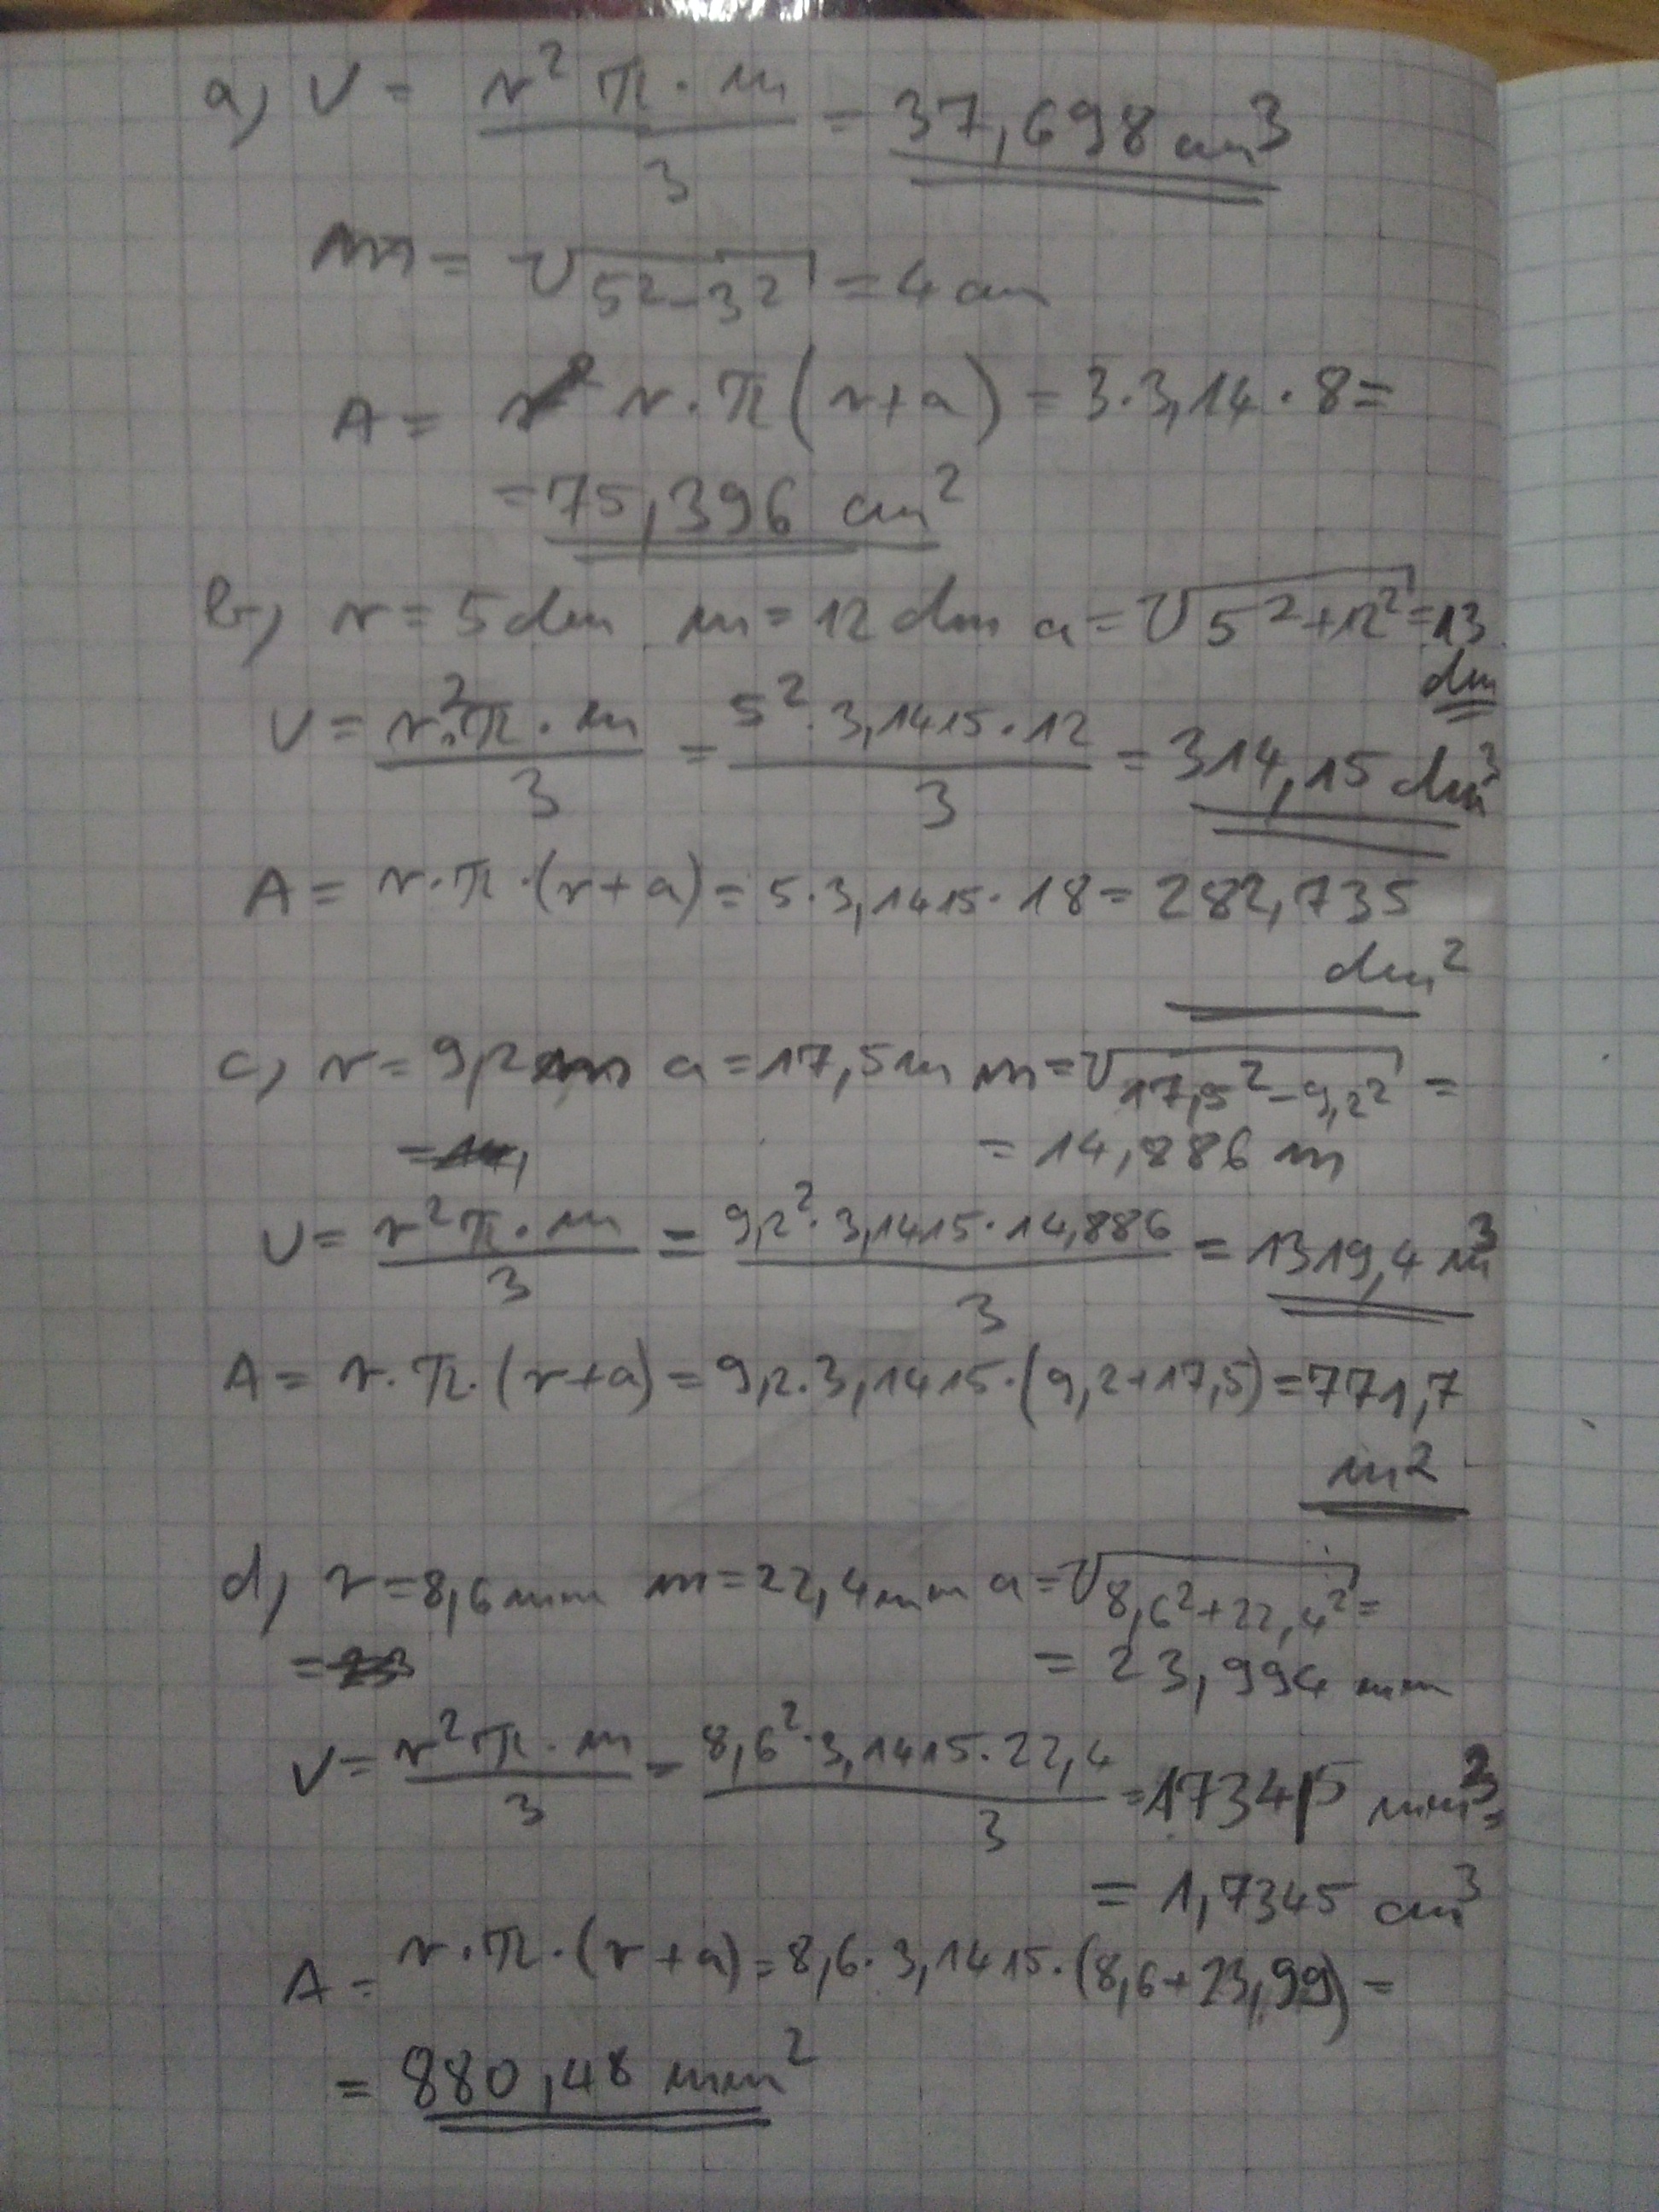 a) V = r² π · m / 3 = 37,698 cm³
m = √5²-3² = 4 cm
A = r · π (r+a) = 3·3,14 · 8 =
= 75,396 cm²
b) r = 5 dm m = 12 dm a = √5²+12² = 13 dm
V = r²·π · m / 3 = 5²·3,1415·12 / 3 = 314,15 dm³
A = r·π·(r+a) = 5·3,1415·18 = 282,735
dm²
c) r = 9,2 m a = 17,5m m = √17,5²-9,2² =
= 14,886 m
V = r²π·m / 3 = 9,2²·3,1415·14,886 / 3 = 1319,4 m³
A = r·π·(r+a) = 9,2·3,1415·(9,2+17,5) = 771,7
m²
d) r = 8,6mm m = 22,4mm a = √8,6²+22,4² =
= 23,994 mm
V = r²π·m / 3 = 8,6²·3,1415·22,4 / 3 = 1734,5 mm³ =
= 1,7345 cm³
A = r·π·(r+a) = 8,6·3,1415·(8,6+23,99) =
= 880,48 mm²